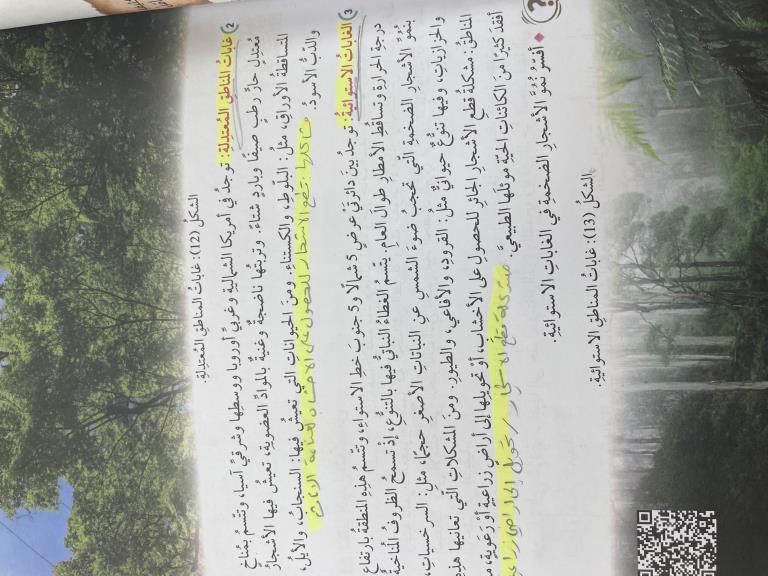 الشكل (12): غابات المناطق المُعتدِلة.
2 غابات المناطق المُعتدِلة: توجدُ في أمريكا الشمالية وغربيِّ أوروبا ووسطِها وشرقيِّ آسيا، وتتَّسمُ بمُناخٍ
مُعتدِلٍ حارٍّ رطبٍ صيفًا وباردٍ شتاءً. وتربتُها ناضجةٌ وغنيةٌ بالموادِّ العضويةِ، تعيشُ فيها الأشجارُ
المتساقطةُ الأوراقِ، مثلُ: البلّوطِ، والكستناءِ. ومنَ الحيواناتِ التي تعيشُ فيها: السنجابُ، والأيلُ،
والدبُّ الأسودُ. مشاكلها: قطع الاشجار للحصول على الاخشاب لصناعة الاثاث
3 الغاباتُ الاستوائيةُ: توجدُ بينَ دائرتَيْ عرضِ 5 شمالًا و5 جنوبَ خطِّ الاستواءِ، وتتَّسمُ هذهِ المنطقةُ بارتفاعِ
درجةِ الحرارةِ وتساقطِ الأمطارِ طوالَ العامِ. يتَّسمُ الغطاءُ النباتيُّ فيها بالتنوُّعِ، إذْ تسمحُ الظروفُ المُناخيةُ
بنموِّ الأشجارِ الضخمةِ التي تحجبُ ضوءَ الشمسِ عنِ النباتاتِ الأصغرِ حجمًا، مثلِ: السرخسياتِ،
والحزازياتِ، وفيها تنوُّعٌ حيوانيٌّ مثلُ: القرودِ، والأفاعي، والطيورِ. ومنَ المشكلاتِ التي تعانيها هذهِ
المناطقُ: مشكلةُ قطعِ الأشجارِ الجائرِ للحصولِ على الأخشابِ، أوْ تحويلِها إلى أراضٍ زراعيةٍ أوْ رعويةٍ،
أفقدَ كثيرًا منَ الكائناتِ الحيّةِ موئلَها الطبيعيَّ. مشكلة قطع الاشجار / تحويل إلى اراضي
؟ ◆ أُفسِّرُ نُموَّ الأشجارِ الضخمةِ في الغاباتِ الاستوائيةِ.
الشكل (13): غاباتُ المناطقِ الاستوائيةِ.